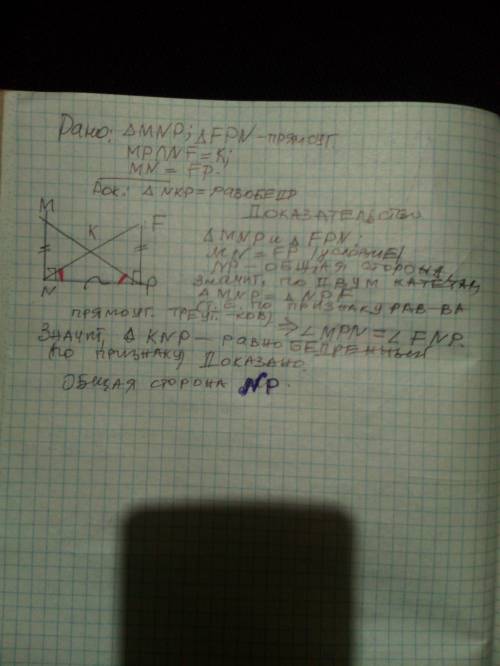 Дано: △MNP; △FPN - прямоуг.
MP∩NF = K;
MN = FP.
Док: △NKP = равобедр
Доказательство
M
F
K
N
P
△MNP и △FPN:
MN = FP /условие/
NP - общая сторона,
значит, по двум катетам
△MNP = △NPF
(т.е. по признаку рав-ва
прямоуг. треуг-ков) ⇒ ∠MPN = ∠FNP.
Значит, △KNP - равнобедренный
(по признаку) Доказано.
Общая сторона NP.